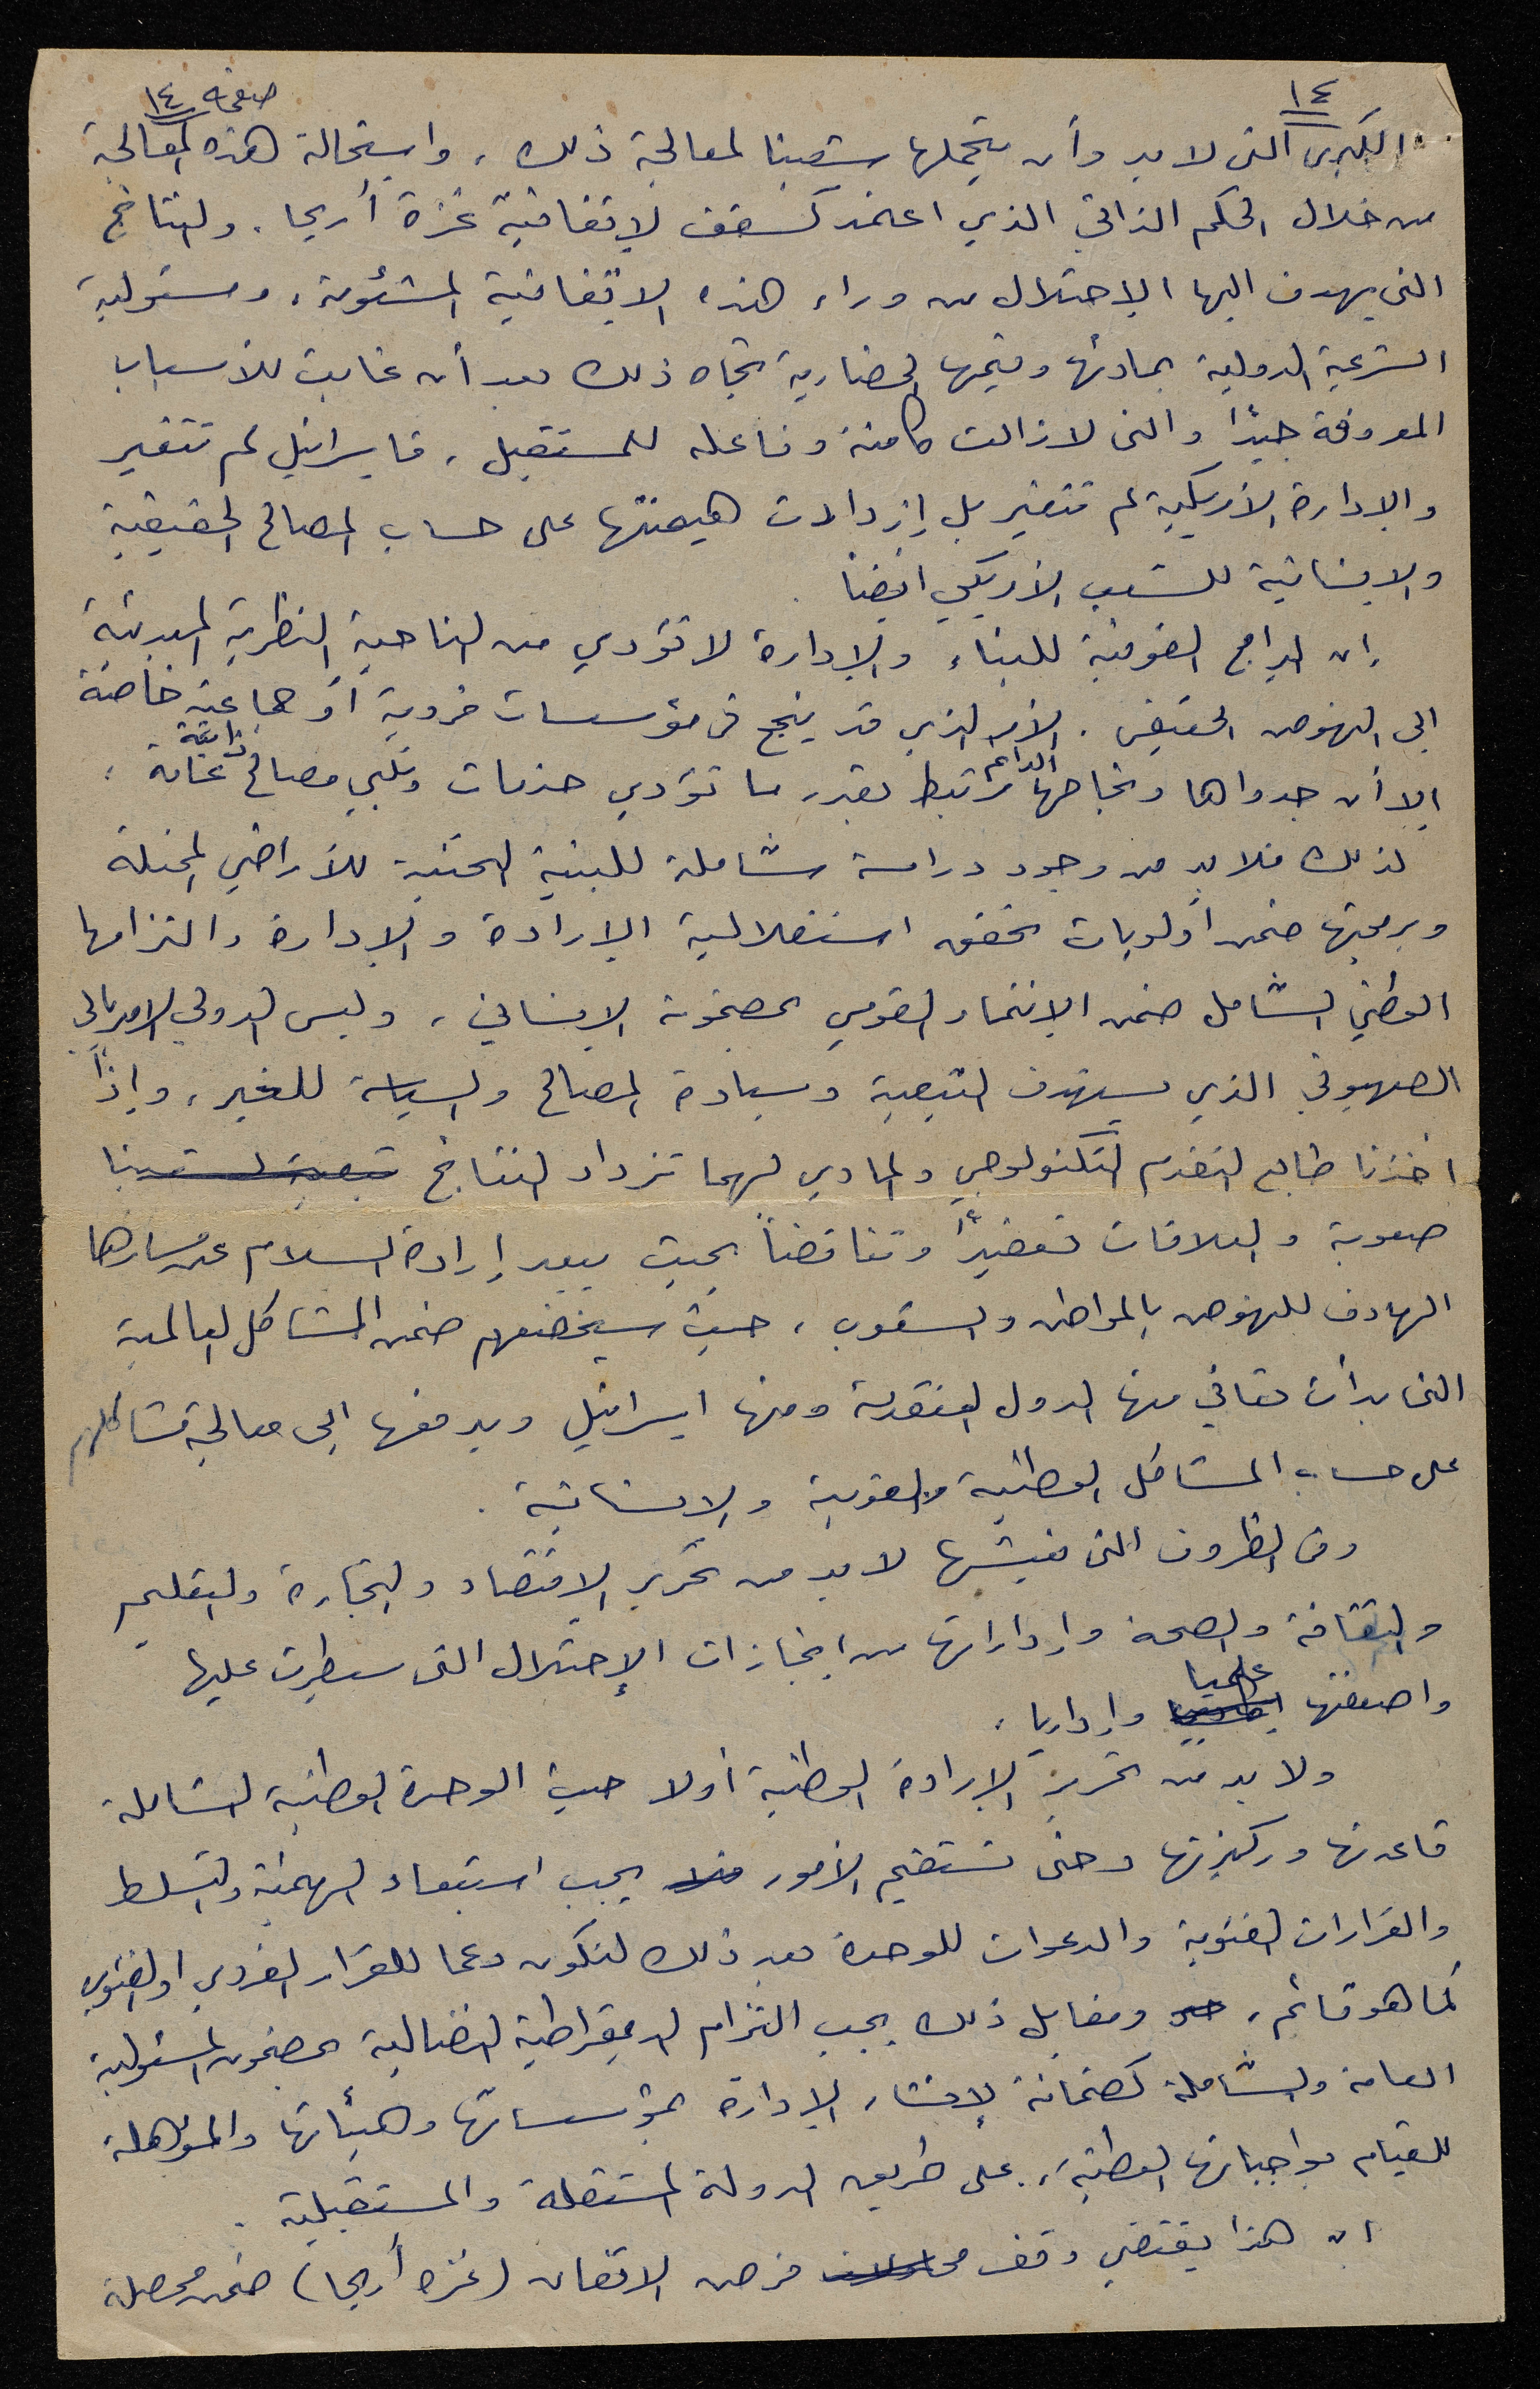 ١٤
صفحة ١٤
الكبرى التي لا بد وأن يتحملها شعبنا لمعالجة ذلك، واستحالة هذه المعالجة
من خلال الحكم الذاتي الذي اعتمد كسقف لاتفاقية غزة أريحا. والنتائج
التي يهدف اليها الاحتلال من وراء هذه الاتفاقية المشئومة، ومسئولية
الشرعية الدولية بمبادئها وقيمها الحضارية تجاه ذلك بعد أن غابت للأسباب
المعروفة جيدًا والتي لا زالت كامنة وفاعلة للمستقبل، فاسرائيل لم تتغير
والادارة الأمريكية لم تتغير بل إزدادت هيمنتها على حساب المصالح الحقيقية
والانسانية للشعب الأمريكي ايضًا.
إن البرامج الفوقية للبناء والإدارة لا تؤدي من الناحية النظرية المبدئية
الى النهوض الحقيقي. الأمر الذي قد ينجح في مؤسسات فردية أو جماعية خاصة
ذاتية
الدائم
إلا أن جدواها ونجاحها مرتبط بقدر ما تؤدي خدمات وتلبي مصالح عامة،
لذلك فلا بد من وجود دراسة شاملة للبنية التحتية للأراضي المحتلة
وبرمجتها ضمن أولويات تحقق استقلالية الارادة والإدارة والتزامها
الوطني الشامل ضمن الانتماء القومي بمضمونه الانساني، وليس الدولي الامبريالي
الصهيوني الذي يستهدف التبعية وسيادة المصالح والسياسة للغير، وإذا
اخذنا طابع التقدم التكنولوجي والمادي لهما تزداد النتائج
صعوبة والعلاقات تعقيدًا وتناقضًا بحيث يبعد إرادة السلام عن مسارها
الهادف للنهوض بالمواطن والشعوب، حيث سيخضعهم ضمن المشاكل العالمية
التي بدأت تعاني منها الدول المتقدمة ومنها اسرائيل ويدفعها الى معالجة مشاكلهم
على حساب المشاكل الوطنية والقومية والانسانية.
وفي الظروف التي نعيشها لا بد من تحرير الاقتصاد والتجارة والتعليم
والثقافة والصحة واداراتها من انجازات الإحتلال التي سيطرت عليها
علميا
واضعفتها واداريا،
ولا بد من تحرير الارادة الوطنية أولا حيث الوحدة الوطنية الشاملة
قاعدتها وركيزتها وحتى تستقيم الأمور يجب استبعاد الهيمنة والتسلط
والقرارات الفئوية والدعوات للوحدة بعد ذلك لتكون دعما للقرار الفردي او الفئوي
كما هو قائم، ومقابل ذلك يجب التزام الديمقراطية النضالية بمضمون المسئولية
العامة والشاملة كضمانة لإنشاء الإدارة بمؤسساتها وهيئاتها والمؤهلة
للقيام بواجباتها الوطنية، على طريق الدولة المستقلة والمستقبلية.
ان هذا يقتضي وقف محاولات فرض الاتفاق (غزه أريحا) ضمن محصلة